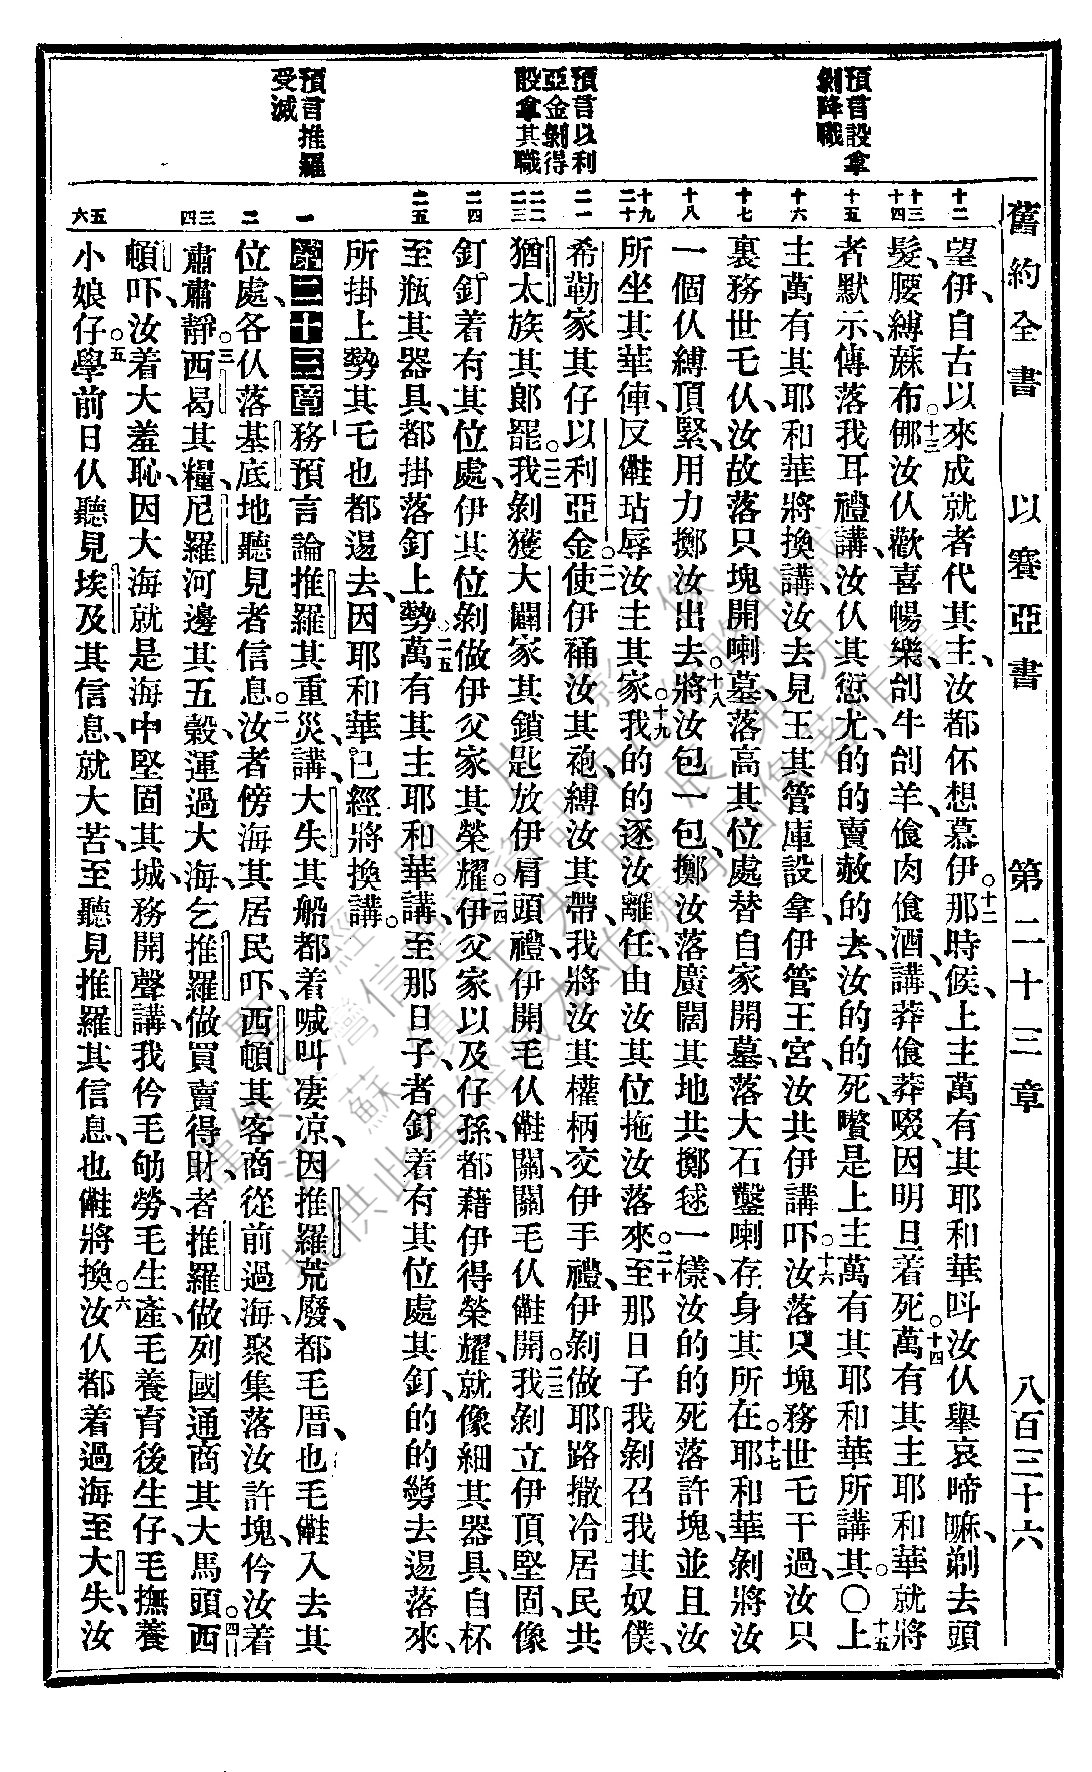 舊約全書 以賽亞書 第二十三章 八百三十六
預言設拿
剝降職
預言以利
亞金剝得
設拿其職
預言推羅
受滅
十二
十三
十四
十五
十六
十七
十八
十九
二十
二一
二二
二三
二四
二五
一
二
三
四
五
六
望伊、自古以來成就者代其主、汝都怀想慕伊。十二那時候、上主萬有其耶和華呌汝仈舉哀啼嘛、剃去頭
髮、腰縛蔴布。十三倻汝仈歡喜暢樂、刣牛刣羊、飡肉飡酒、講、莽飡莽啜、因明旦着死。十四萬有其主耶和華就將
者默示、傳落我耳禮講、汝仈其愆尤的的賣赦的去、汝的的死、嚽是上主萬有其耶和華所講其。〇十五上
主萬有其耶和華將換講、汝去見王其管庫設拿、伊管王宮、汝共伊講吓、十六汝落只塊務世乇干過、汝只
裏務世乇仈、汝故落只塊開喇墓、落高其位處替自家開墓、落大石鑿喇存身其所在。十七耶和華剝將汝
一個仈縛頂緊、用力擲汝出去。十八將汝包一包、擲汝落廣闊其地共擲毬一樣、汝的的死落許塊、並且汝
所坐其華俥、反﨡玷辱汝主其家。十九我的的逐汝離任、由汝其位拖汝落來。二十至那日子我剝召我其奴僕、
希勒家其仔以利亞金。二一使伊䄛汝其袍、縛汝其帶、我將汝其權柄交伊手禮、伊剝做耶路撒冷居民共
猶太族其郎罷。二二我剝獲大闢家其鎖匙放伊肩頭禮、伊開毛仈﨡關、關毛仈﨡開。二三我剝立伊頂堅固、像
釘釘着有其位處、伊其位剝做伊父家其榮耀。二四伊父家以及仔孫、都藉伊得榮耀、就像細其器具、自杯
至瓶其器具、都掛落釘上勢。二五萬有其主耶和華講、至那日子、者釘釘着有其位處其釘、的的㔶去逿落來、
所掛上勢其乇也都逿去、因耶和華已經將換講。
第二十三章 務預言論推羅其重災講、大失其船都着喊叫凄凉、因推羅荒廢、都毛厝、也毛﨡入去其
位處、各仈落基底地聽見者信息。二汝者傍海其居民吓、西頓其客商從前過海、聚集落汝許塊、仱汝着
肅肅靜。三西曷其糧、尼羅河邊其五穀、運過大海、乞推羅做買賣得財、者推羅做列國通商其大馬頭。四西
頓吓、汝着大羞恥、因大海就是海中堅固其城、務開聲講、我仱毛劬勞、毛生產、毛養育後生仔、毛撫養
小娘仔。五學前日仈聽見埃及其信息、就大苦、至聽見推羅其信息、也﨡將換。六汝仈都着過海至大失、汝